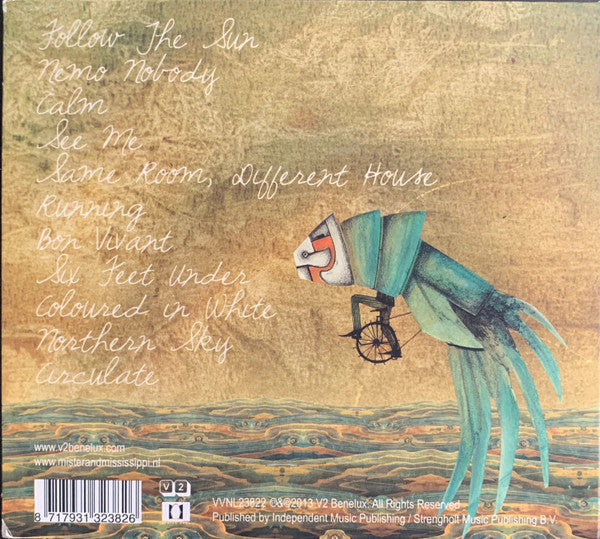 Follow The Sun
Nemo Nobody
Calm
See Me
Same Room, Different House
Running
Bon Vivant
Six Feet Under
Coloured in White
Northern Sky
Circulate
www.v2benelux.com
www.misterandmississippi.nl
V 2
8 717931 323826
VVNL23822 ℗&©2013 V2 Benelux. All Rights Reserved
Published by Independent Music Publishing / Strengholt Music Publishing B.V.